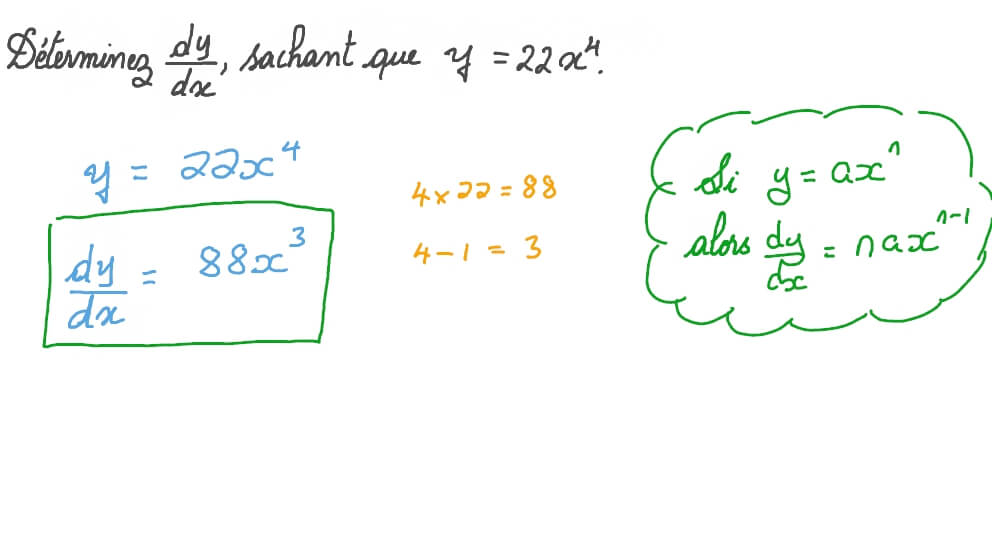 Déterminez dy/dx, sachant que y = 22x⁴.
y = 22x⁴
dy/dx = 88x³
4 × 22 = 88
4 - 1 = 3
Si y = axⁿ
alors dy/dx = naxⁿ⁻¹